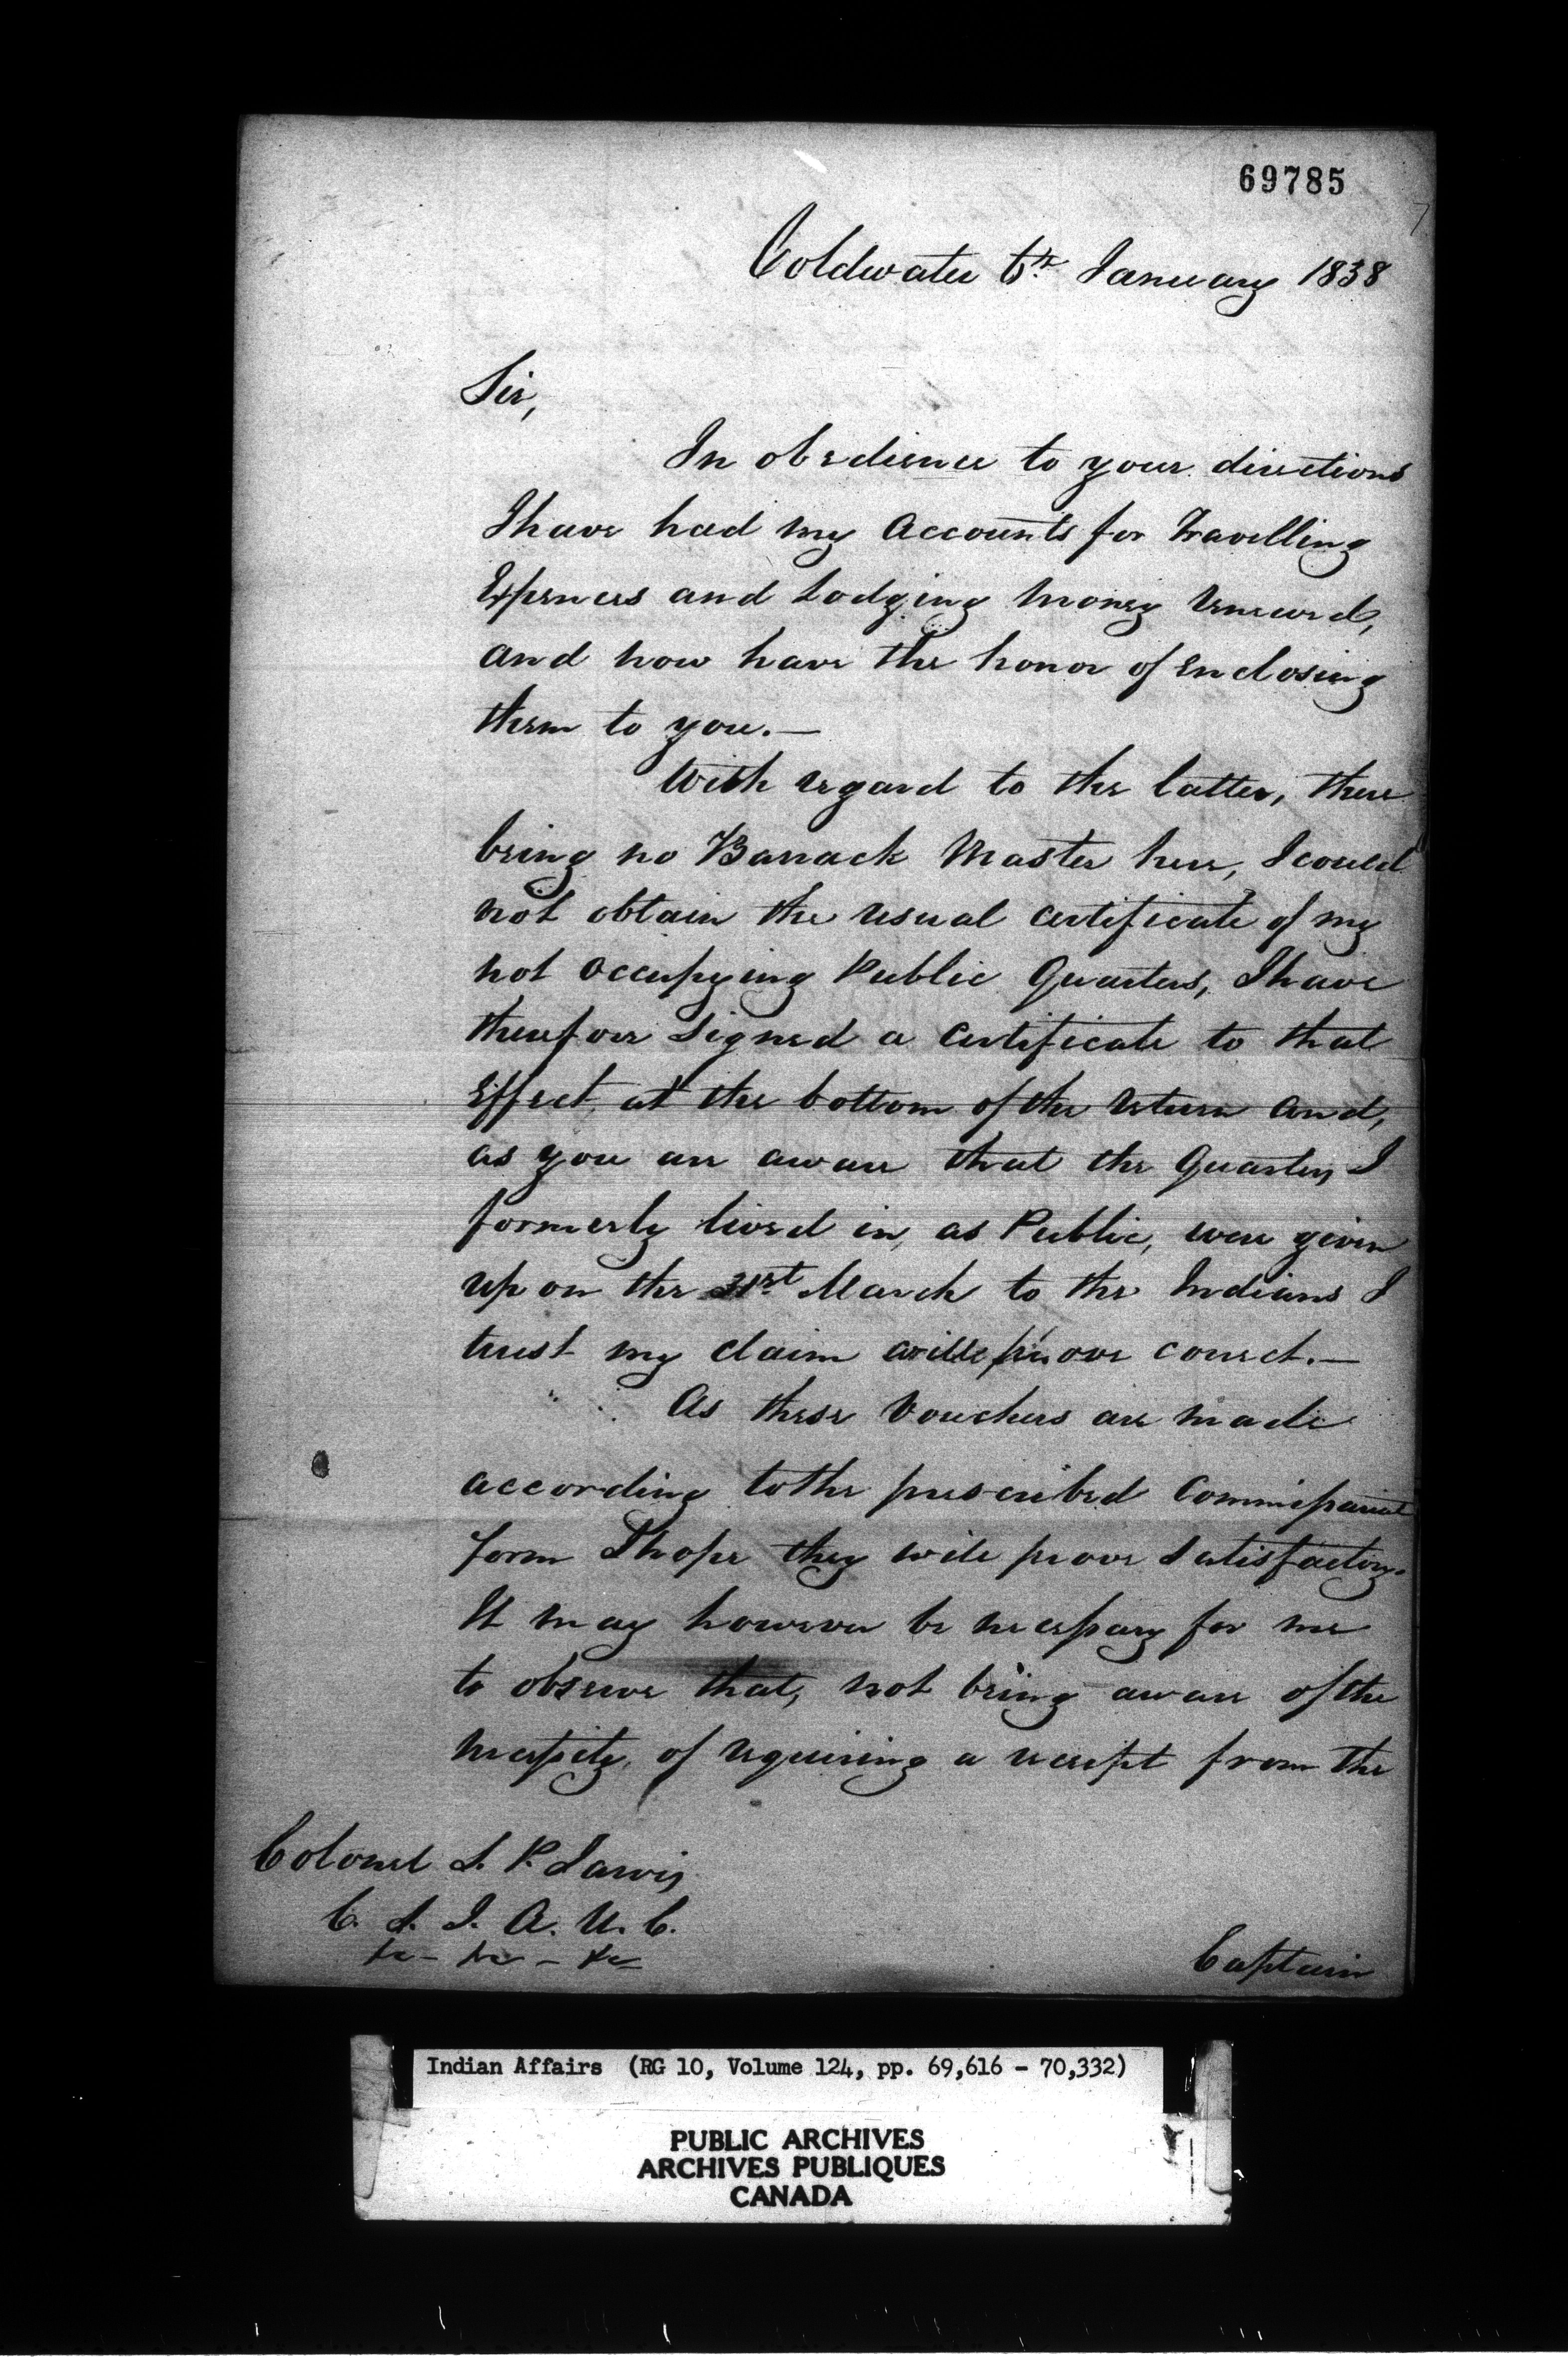 69785
Coldwater 6th January 1838
Sir,
In obedience to your directions
I have had my Accounts for Travelling
Expences and Lodging Money renewed,
and now have the honor of Enclosing
them to you.—
With regard to the latter, there
being no Barrack Master here, I could
not obtain the usual certificate of my
not occupying Public Quarters, I have
therefore signed a Certificate to that
Effect, at the bottom of the return and,
as you are aware that the Quarters I
formerly lived in, as Public, were given
up on the 31st March to the Indians I
trust my claim will prove correct.—
As these Vouchers are made
according to the prescribed Commissariat
form I hope they will prove satisfactory.
It may however be necessary for me
to observe that, not being aware of the
necessity of requiring a receipt from the
Colonel S. P. Jarvis
C. S. I. A. U. C.
&c - &c - &c
Captain
Indian Affairs (RG 10, Volume 124, pp. 69,616 - 70,332)
PUBLIC ARCHIVES
ARCHIVES PUBLIQUES
CANADA